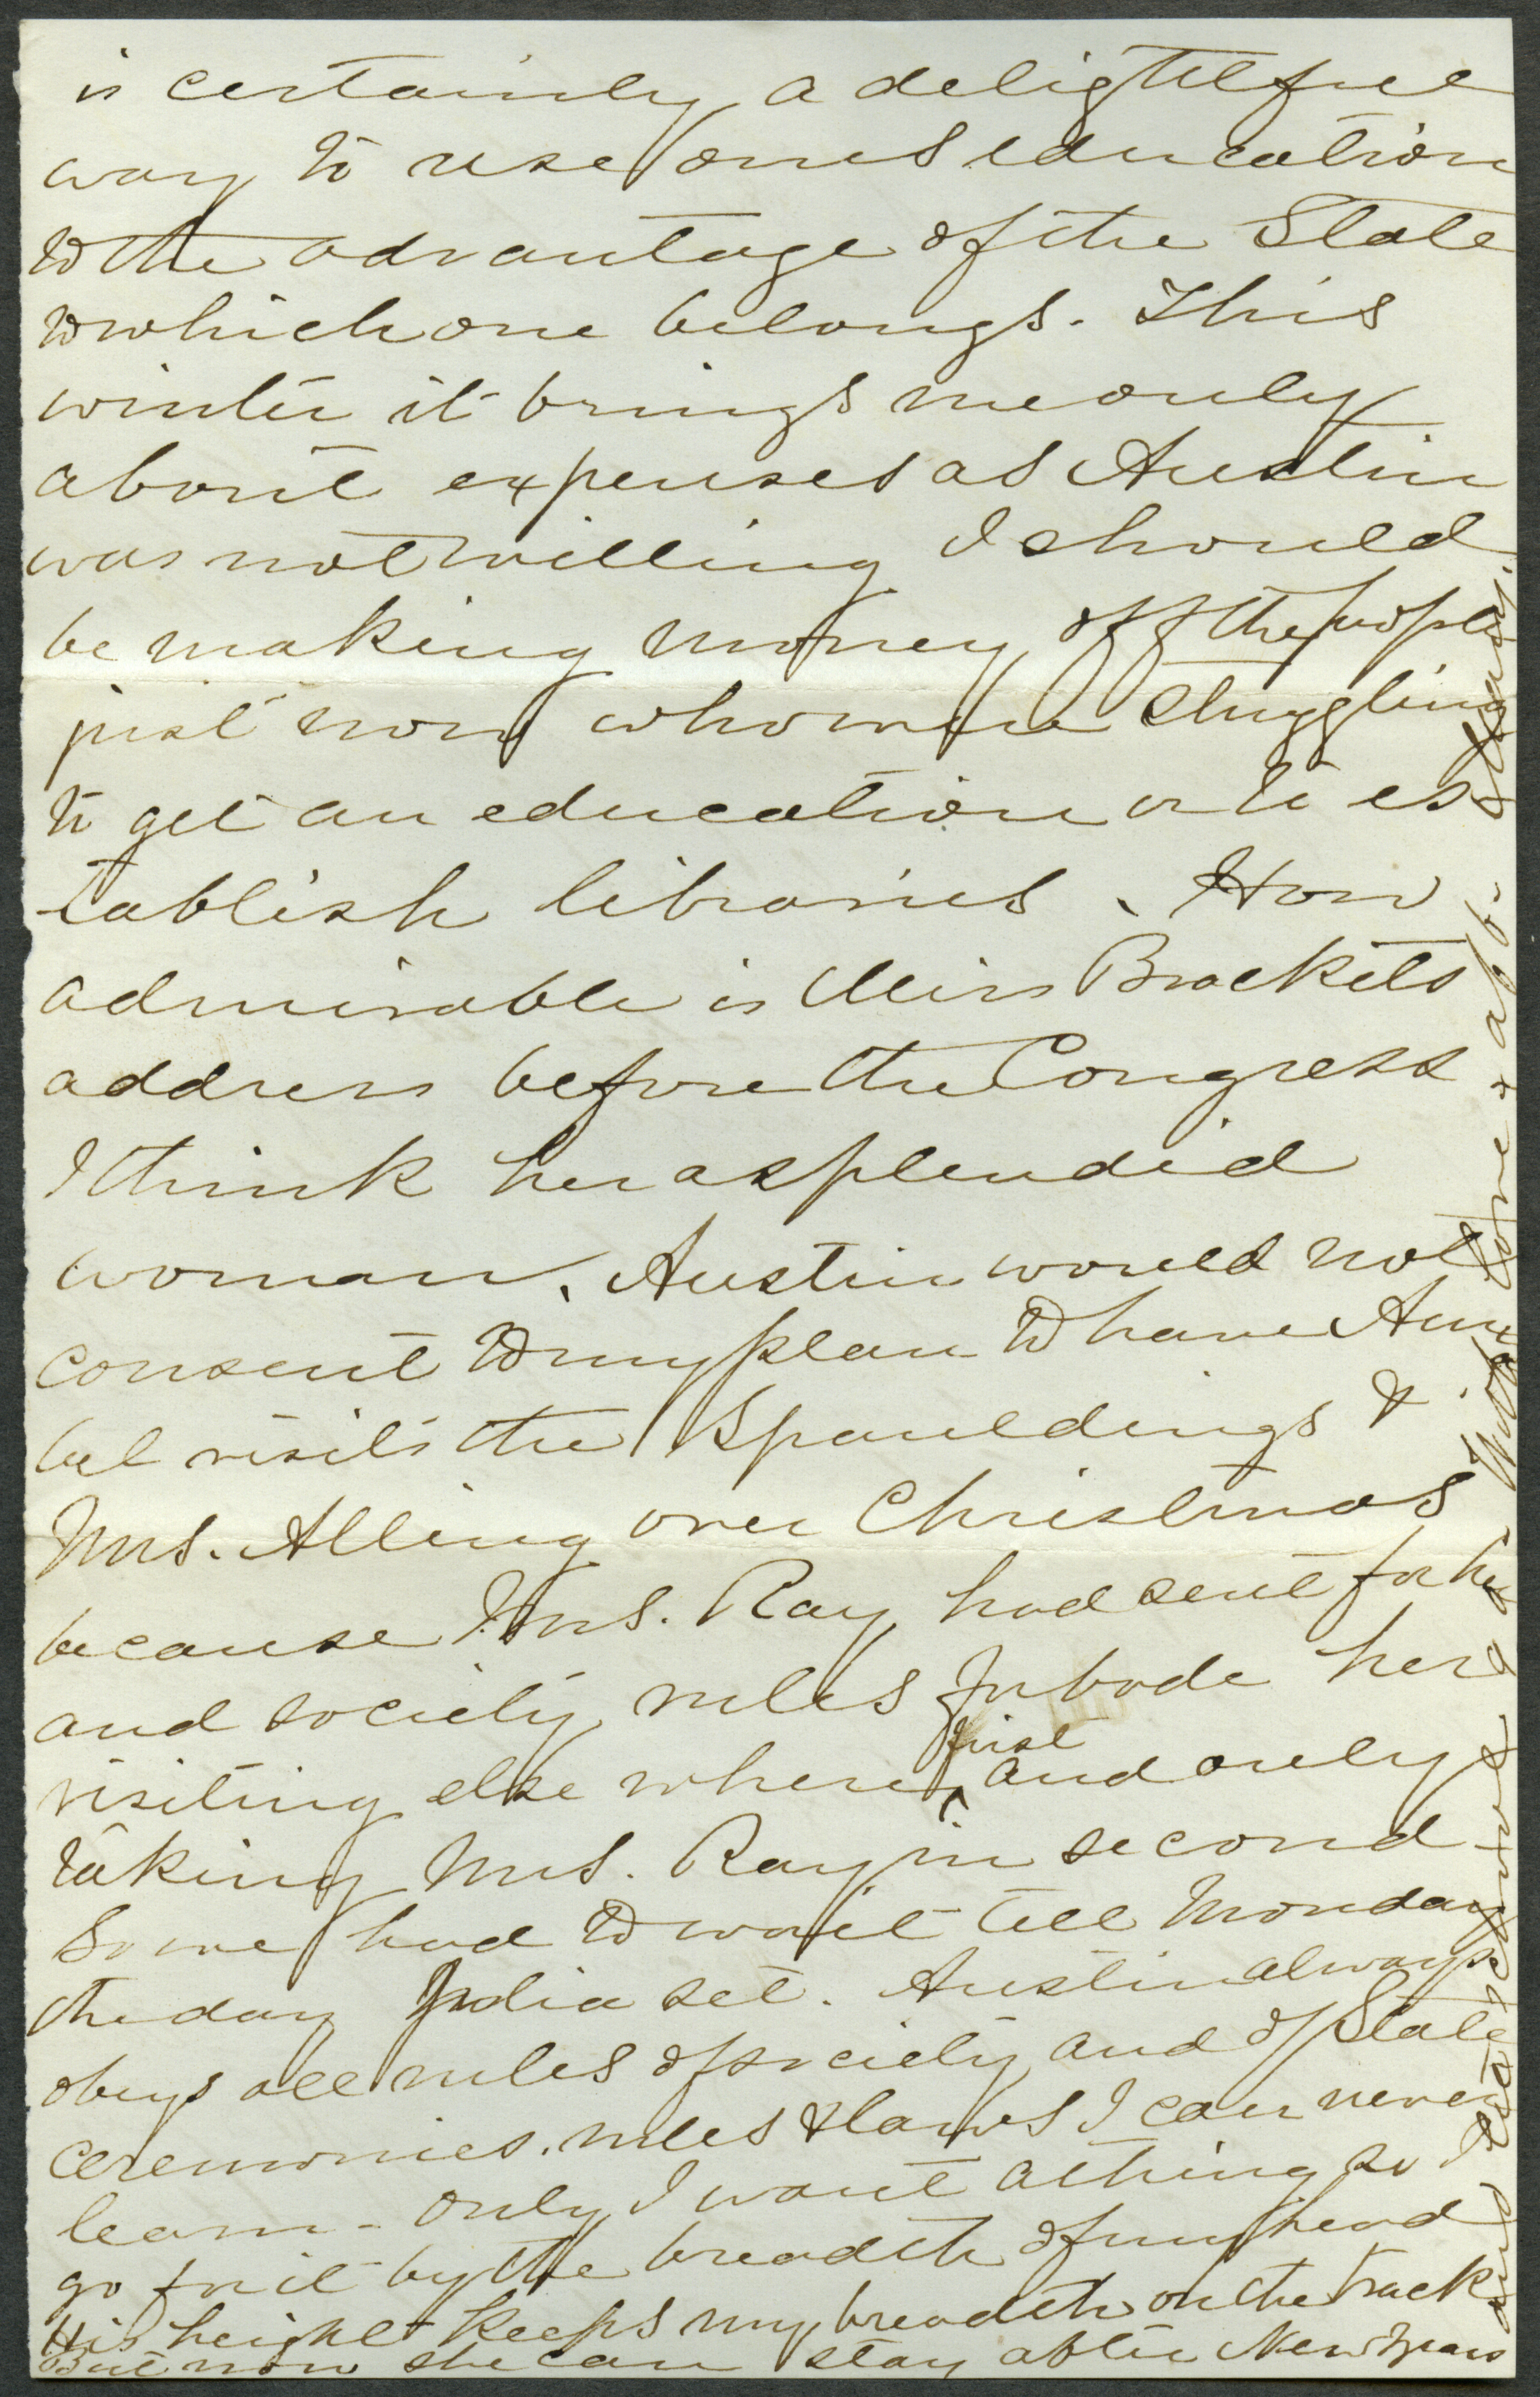 is certainly a delightful
way to use ones education
to the advantage of the State
to which one belongs. This
winter it brings me only
about expenses as Austin
was not willing I should
be making money off the people
just now who were struggling
to get an education or to es-
tablish libraries. How
admirable is Miss Bracketts
address before the Congress
I think her a splendid
woman. Austin would not
consent to my plan to have Ama
bel visit the Spauldings &
Mrs. Alling over Christmas
because Mrs. Ray had sent for her
and society rules forbade her
visiting else where first and only
taking Mrs. Ray in second
So we had to wait till Monday
the day Julia set. Austin always
obeys all rules of society and of State
ceremonies. rules & laws I can never
learn - only I want a thing so I
go for it by the breadth of my head
His height keeps my breadth on the track
But now she can stay after New Years
and
With love &